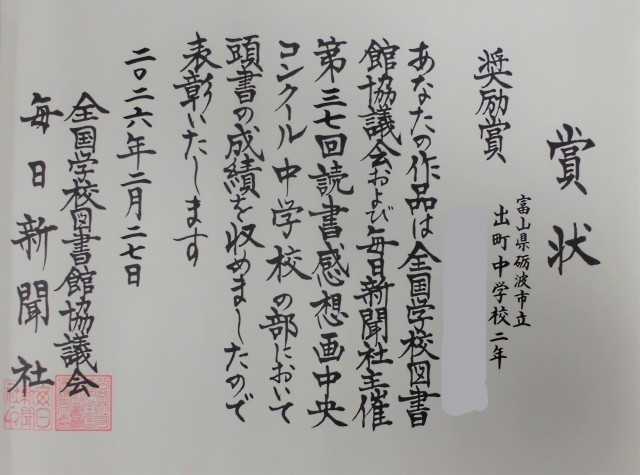 賞状
富山県砺波市立
出町中学校二年
奨励賞
あなたの作品は全国学校図書
館協議会および毎日新聞社主催
第三七回読書感想画中央
コンクール中学校の部において
頭書の成績を収めましたので
表彰いたします
二〇二六年二月二七日
全国学校図書館協議会
毎日新聞社